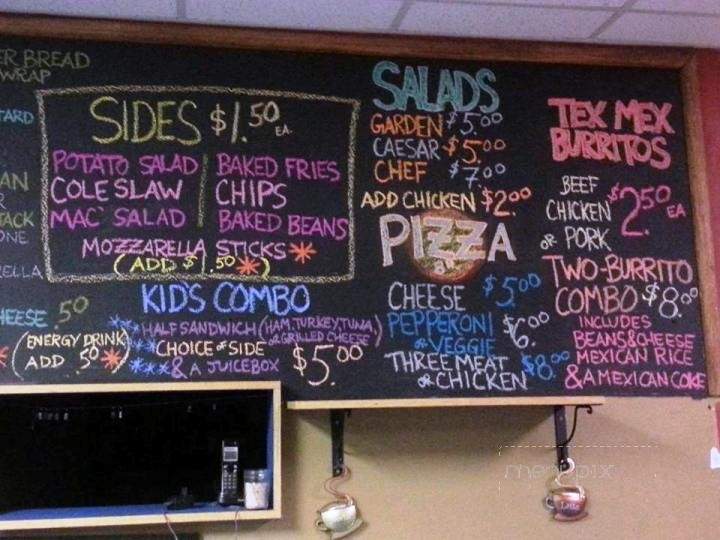 ER BREAD
WRAP
TARD
AN
R
TACK
ONE
RELLA
HEESE .50
(ENERGY DRINK)
ADD .50
SIDES $1.50 EA.
POTATO SALAD
COLE SLAW
MAC SALAD
BAKED FRIES
CHIPS
BAKED BEANS
MOZZARELLA STICKS *
(ADD $1.50 *)
KIDS COMBO
HALF SANDWICH (HAM, TURKEY, TUNA,
OR GRILLED CHEESE)
CHOICE OF SIDE
& A JUICEBOX
$5.00
SALADS
GARDEN $5.00
CAESAR $5.00
CHEF $7.00
ADD CHICKEN $2.00
PIZZA
CHEESE $5.00
PEPPERONI
OR VEGGIE $6.00
THREE MEAT
OR CHICKEN $8.00
TEX MEX
BURRITOS
BEEF
CHICKEN
OR PORK
$2.50 EA
TWO-BURRITO
COMBO $8.00
INCLUDES
BEANS & CHEESE
MEXICAN RICE
& A MEXICAN COKE
menupix